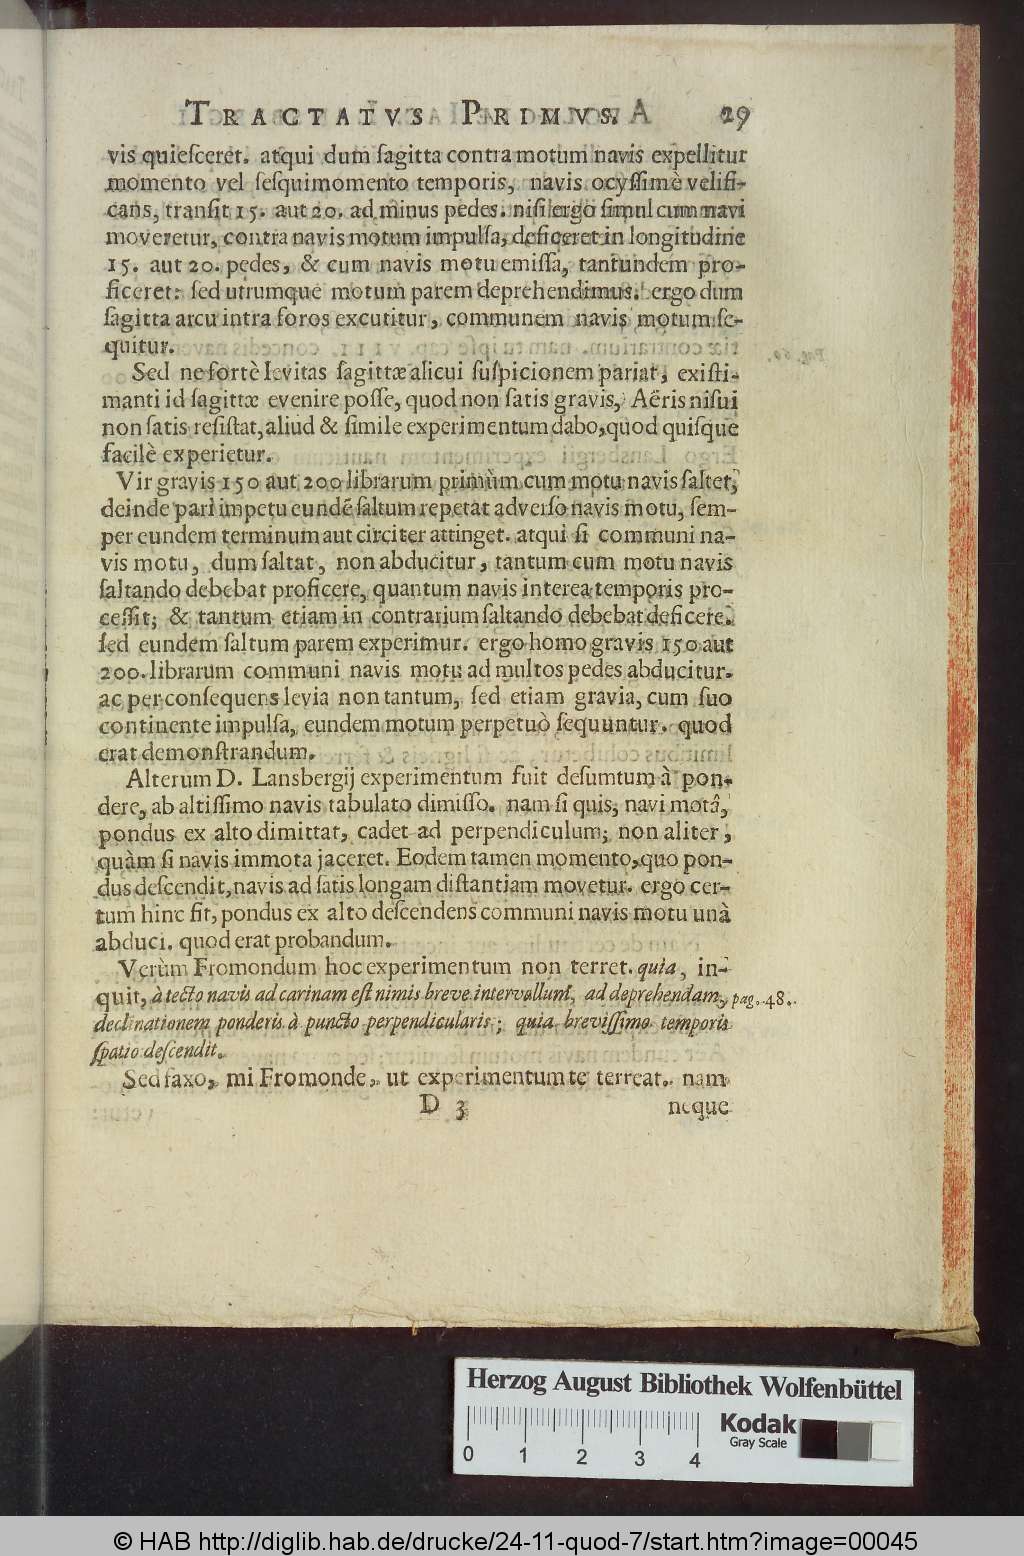 TRACTATVS PRIMVS. 29
vis quieſceret. atqui dum ſagitta contra motum navis expellitur
momento vel ſeſquimomento temporis, navis ocyſſimè velifi-
cans, tranſit 15. aut 20. ad minus pedes. niſi ergo ſimul cum navi
moveretur, contra navis motum impulſa, deficeret in longitudine
15. aut 20. pedes, & cum navis motu emiſſa, tantundem pro-
ficeret: ſed utrumque motum parem deprehendimus. ergo dum
ſagitta arcu intra foros excutitur, communem navis motum ſe-
quitur.
Sed ne fortè levitas ſagittæ alicui ſuſpicionem pariat, exiſti-
manti id ſagittæ evenire poſſe, quod non ſatis gravis, Aëris niſui
non ſatis reſiſtat, aliud & ſimile experimentum dabo, quod quiſque
facilè experietur.
Vir gravis 150 aut 200 librarum primùm cum motu navis ſaltet,
deinde pari impetu eundē ſaltum repetat adverſo navis motu, ſem-
per eundem terminum aut circiter attinget. atqui ſi communi na-
vis motu, dum ſaltat, non abducitur, tantum cum motu navis
ſaltando debebat proficere, quantum navis interea temporis pro-
ceſſit; & tantum etiam in contrarium ſaltando debebat deficere.
ſed eundem ſaltum parem experimur. ergo homo gravis 150 aut
200. librarum communi navis motu ad multos pedes abducitur.
ac per conſequens levia non tantum, ſed etiam gravia, cum ſuo
continente impulſa, eundem motum perpetuò ſequuntur. quod
erat demonſtrandum.
Alterum D. Lansbergij experimentum fuit deſumtum à pon-
dere, ab altiſſimo navis tabulato dimiſſo. nam ſi quis, navi motâ,
pondus ex alto dimittat, cadet ad perpendiculum; non aliter,
quàm ſi navis immota jaceret. Eodem tamen momento, quo pon-
dus deſcendit, navis ad ſatis longam diſtantiam movetur. ergo cer-
tum hinc fit, pondus ex alto deſcendens communi navis motu unà
abduci. quod erat probandum.
Verùm Fromondum hoc experimentum non terret. quia, in-
quit, à tecto navis ad carinam eſt nimis breve intervallum, ad deprehendam pag. 48.
declinationem ponderis à puncto perpendicularis; quia breviſſimo temporis
ſpatio deſcendit.
Sed faxo, mi Fromonde, ut experimentum te terreat. nam
D 3 neque
Herzog August Bibliothek Wolfenbüttel
0 1 2 3 4
Kodak
Gray Scale
© HAB http://diglib.hab.de/drucke/24-11-quod-7/start.htm?image=00045